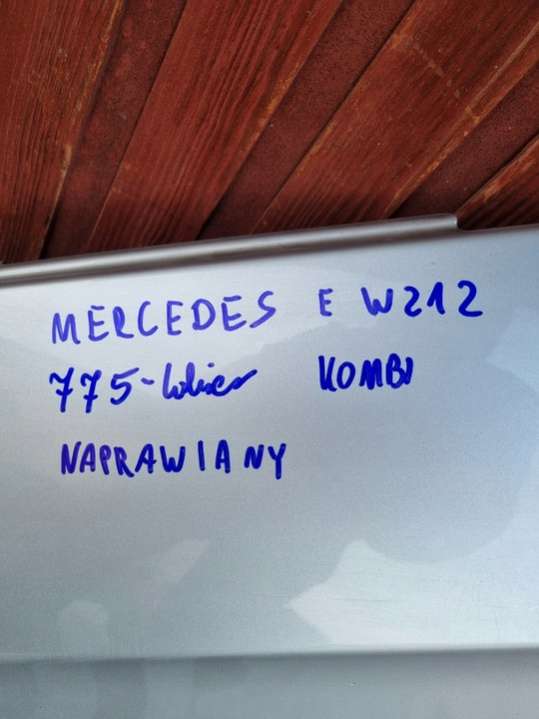 MERCEDES E W212
775-kolor KOMBI
NAPRAWIANY